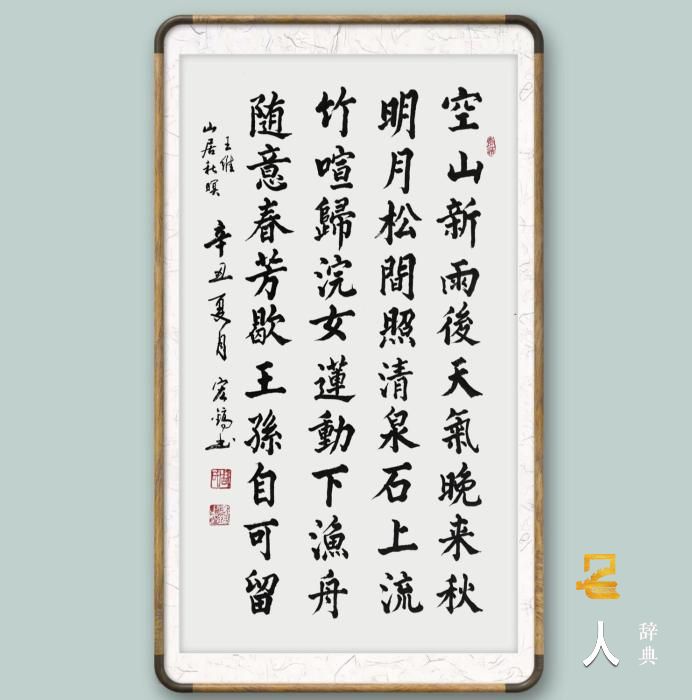 空山新雨後天氣晚来秋
明月松間照清泉石上流
竹喧歸浣女蓮動下漁舟
随意春芳歇王孫自可留
王維
山居秋暝
辛丑夏月
宏鎬书
名人
辞典